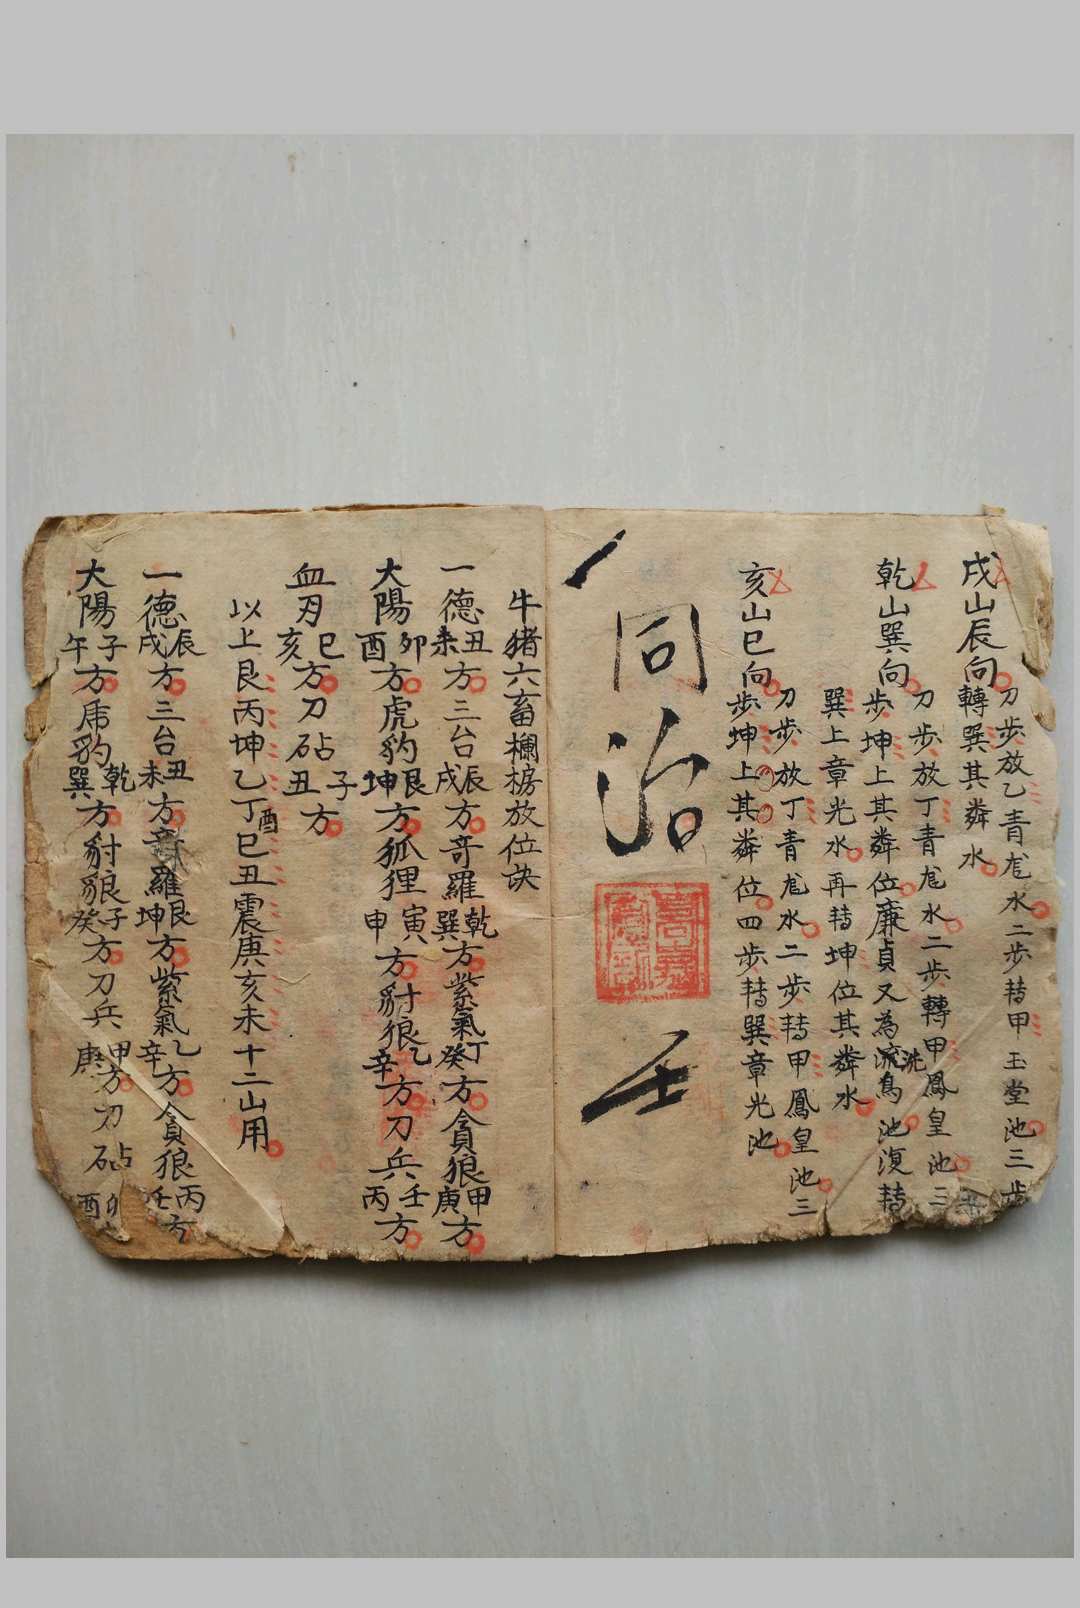 戌山辰向
刀步放乙青尨水二步轉甲玉堂池三步
轉巽其粦水
乾山巽向
刀步放丁青尨水二步轉甲鳳皇池三
步坤上其粦位廉貞又為流鳥池復轉
洗
巽上章光水再轉坤位其粦水
亥山巳向
刀步放丁青尨水二步轉甲鳳皇池三
步坤上其粦位四步轉巽章光池
同治
牛猪六畜欄榜放位訣
一德丑未方三台辰戌方奇羅乾巽方紫氣丁癸方貪狼甲庚方
大陽卯酉方虎豹艮坤方狐狸寅申方豺狼乙辛方刀兵壬丙方
血刃巳亥方刀砧子丑方
以上艮丙坤乙丁酉巳丑震庚亥未十二山用
一德辰戌方三台丑未方奇羅艮坤方紫氣乙辛方貪狼丙壬方
大陽子午方虎豹乾巽方豺狼子癸方刀兵甲庚方刀砧卯酉